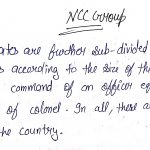 NCC Group
ates are further sub-divided
s according to the size of th
command of an officer eq
of colonel. In all, these a
the country.